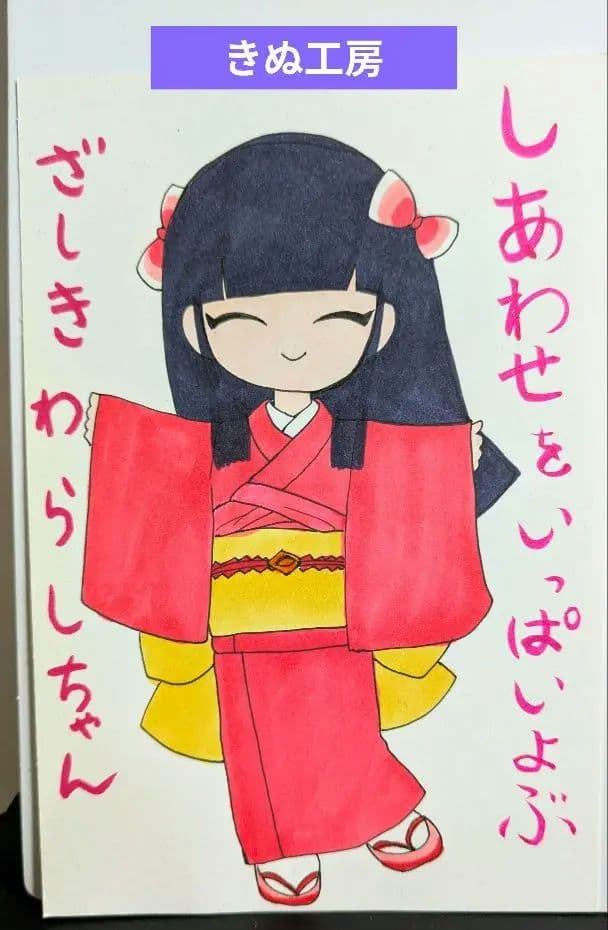 きぬ工房
しあわせをいっぱいよぶ
ざしきわらしちゃん